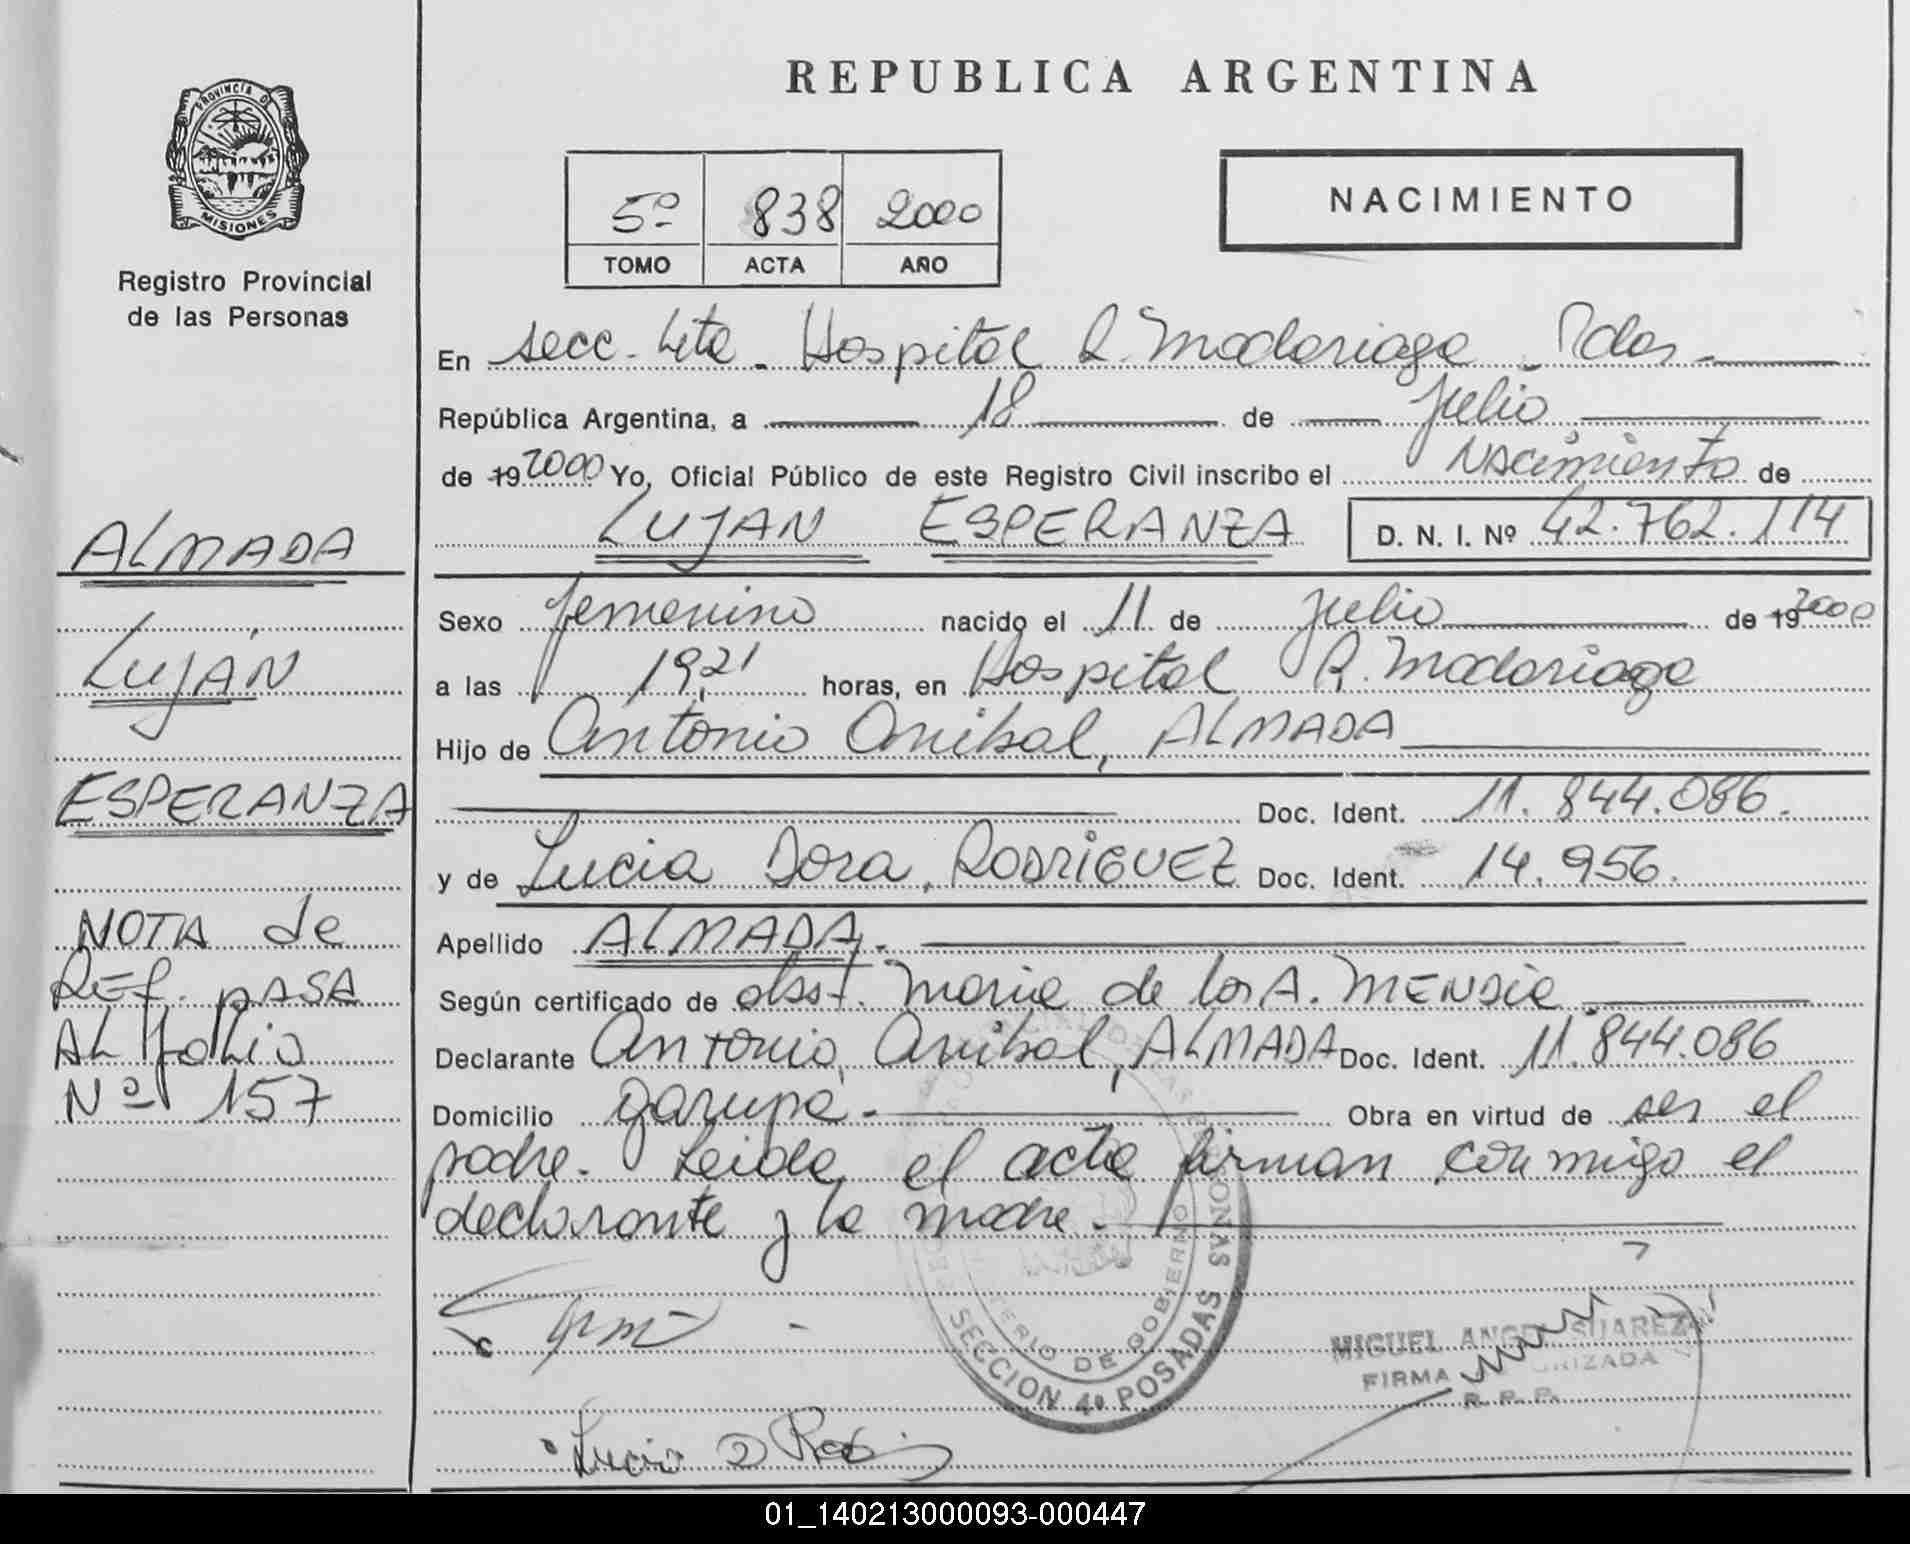 REPUBLICA ARGENTINA
PROVINCIA DE
MISIONES
Registro Provincial
de las Personas
5º 838 2000
TOMO ACTA AÑO
NACIMIENTO
En secc. 4ta. Hospital R. Madariaga Pdas.
República Argentina, a 18 de Julio
de 19 2000 Yo, Oficial Público de este Registro Civil inscribo el Nacimiento de
LUJAN ESPERANZA D. N. I. Nº 42.762.114
Sexo femenino nacido el 11 de Julio de 19 2000
a las 19,21 horas, en Hospital R. Madariaga
Hijo de Antonio Anibal, ALMADA
Doc. Ident. 11.844.086.
y de Lucia Dora, RODRIGUEZ Doc. Ident. 14.956.
Apellido ALMADA.
Según certificado de obst. Maria de los A. MENDIE
Declarante Antonio Anibal, ALMADA Doc. Ident. 11.844.086
Domicilio garupa. Obra en virtud de ser el
padre. Leida el acta firman conmigo el
declarante y la madre.
ALMADA
LUJÁN
ESPERANZA
NOTA de
REF. PASA
AL folio
Nº 157
SECCION 4º POSADAS
DE GOBIERNO
MIGUEL ANGEL SUAREZ
FIRMA
R. P. P.
Lucia D
01_140213000093-000447